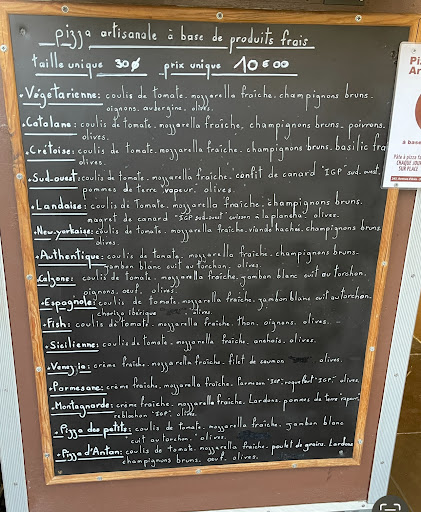 pizza artisanale à base de produits frais
taille unique 30ø prix unique 10€00
• Végétarienne: coulis de tomate. mozzarella fraîche. champignons bruns.
oignons. aubergine. olives.
• Catalane: coulis de tomate. mozzarella fraîche. champignons bruns. poivrons.
olives.
• Crétoise: coulis de tomate. mozzarella fraîche. champignons bruns. basilic frais
olives.
• Sud-ouest: coulis de tomate. mozzarella fraîche. confit de canard "IGP sud-ouest".
pommes de terre vapeur. olives.
• Landaise: coulis de Tomate. mozzarella fraîche. champignons bruns.
magret de canard "IGP sud-ouest" cuisson à la plancha. olives.
• New-yorkaise: coulis de tomate. mozzarella fraîche. viande hachée. champignons bruns.
olives.
• Authentique: coulis de tomate. mozzarella fraîche. champignons bruns.
jambon blanc cuit au torchon. olives.
• Calzone: coulis de tomate. mozzarella fraîche. jambon blanc cuit au torchon.
oignons. oeuf. olives.
• Espagnole: coulis de tomate. mozzarella fraîche. jambon blanc cuit au torchon.
chorizo ibérique olives.
• Fish: coulis de tomate. mozzarella fraîche. thon. oignons. olives.
• Sicilienne: coulis de tomate. mozzarella fraîche. anchois. olives.
• Venezia: crème fraîche. mozzarella fraîche. filet de saumon olives.
• Parmesane: crème fraîche. mozzarella fraîche. Parmesan "IGP". roquefort "IGP". olives
• Montagnarde: crème fraîche. mozzarella fraîche. Lardons. pommes de terre vapeur.
reblochon "IGP". olives.
• Pizza des petits: coulis de tomate. mozzarella fraîche. jambon blanc
cuit au torchon. olives.
• Pizza d'Antan: coulis de tomate. mozzarella fraîche. poulet de grains. Lardons
champignons bruns. oeuf. olives.
Pi
Ar
à base
Pâte à pizza fa
CHAQUE JOUR
SUR PLACE